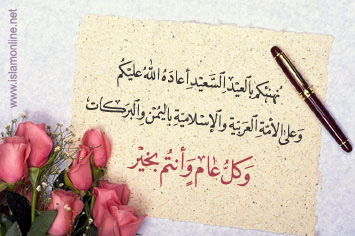 نهنئكم بالعيد السعيد أعاده الله عليكم
وعلى الأمة العربية والإسلامية باليمن والبركات
وكل عام وأنتم بخير
www.islamonline.net